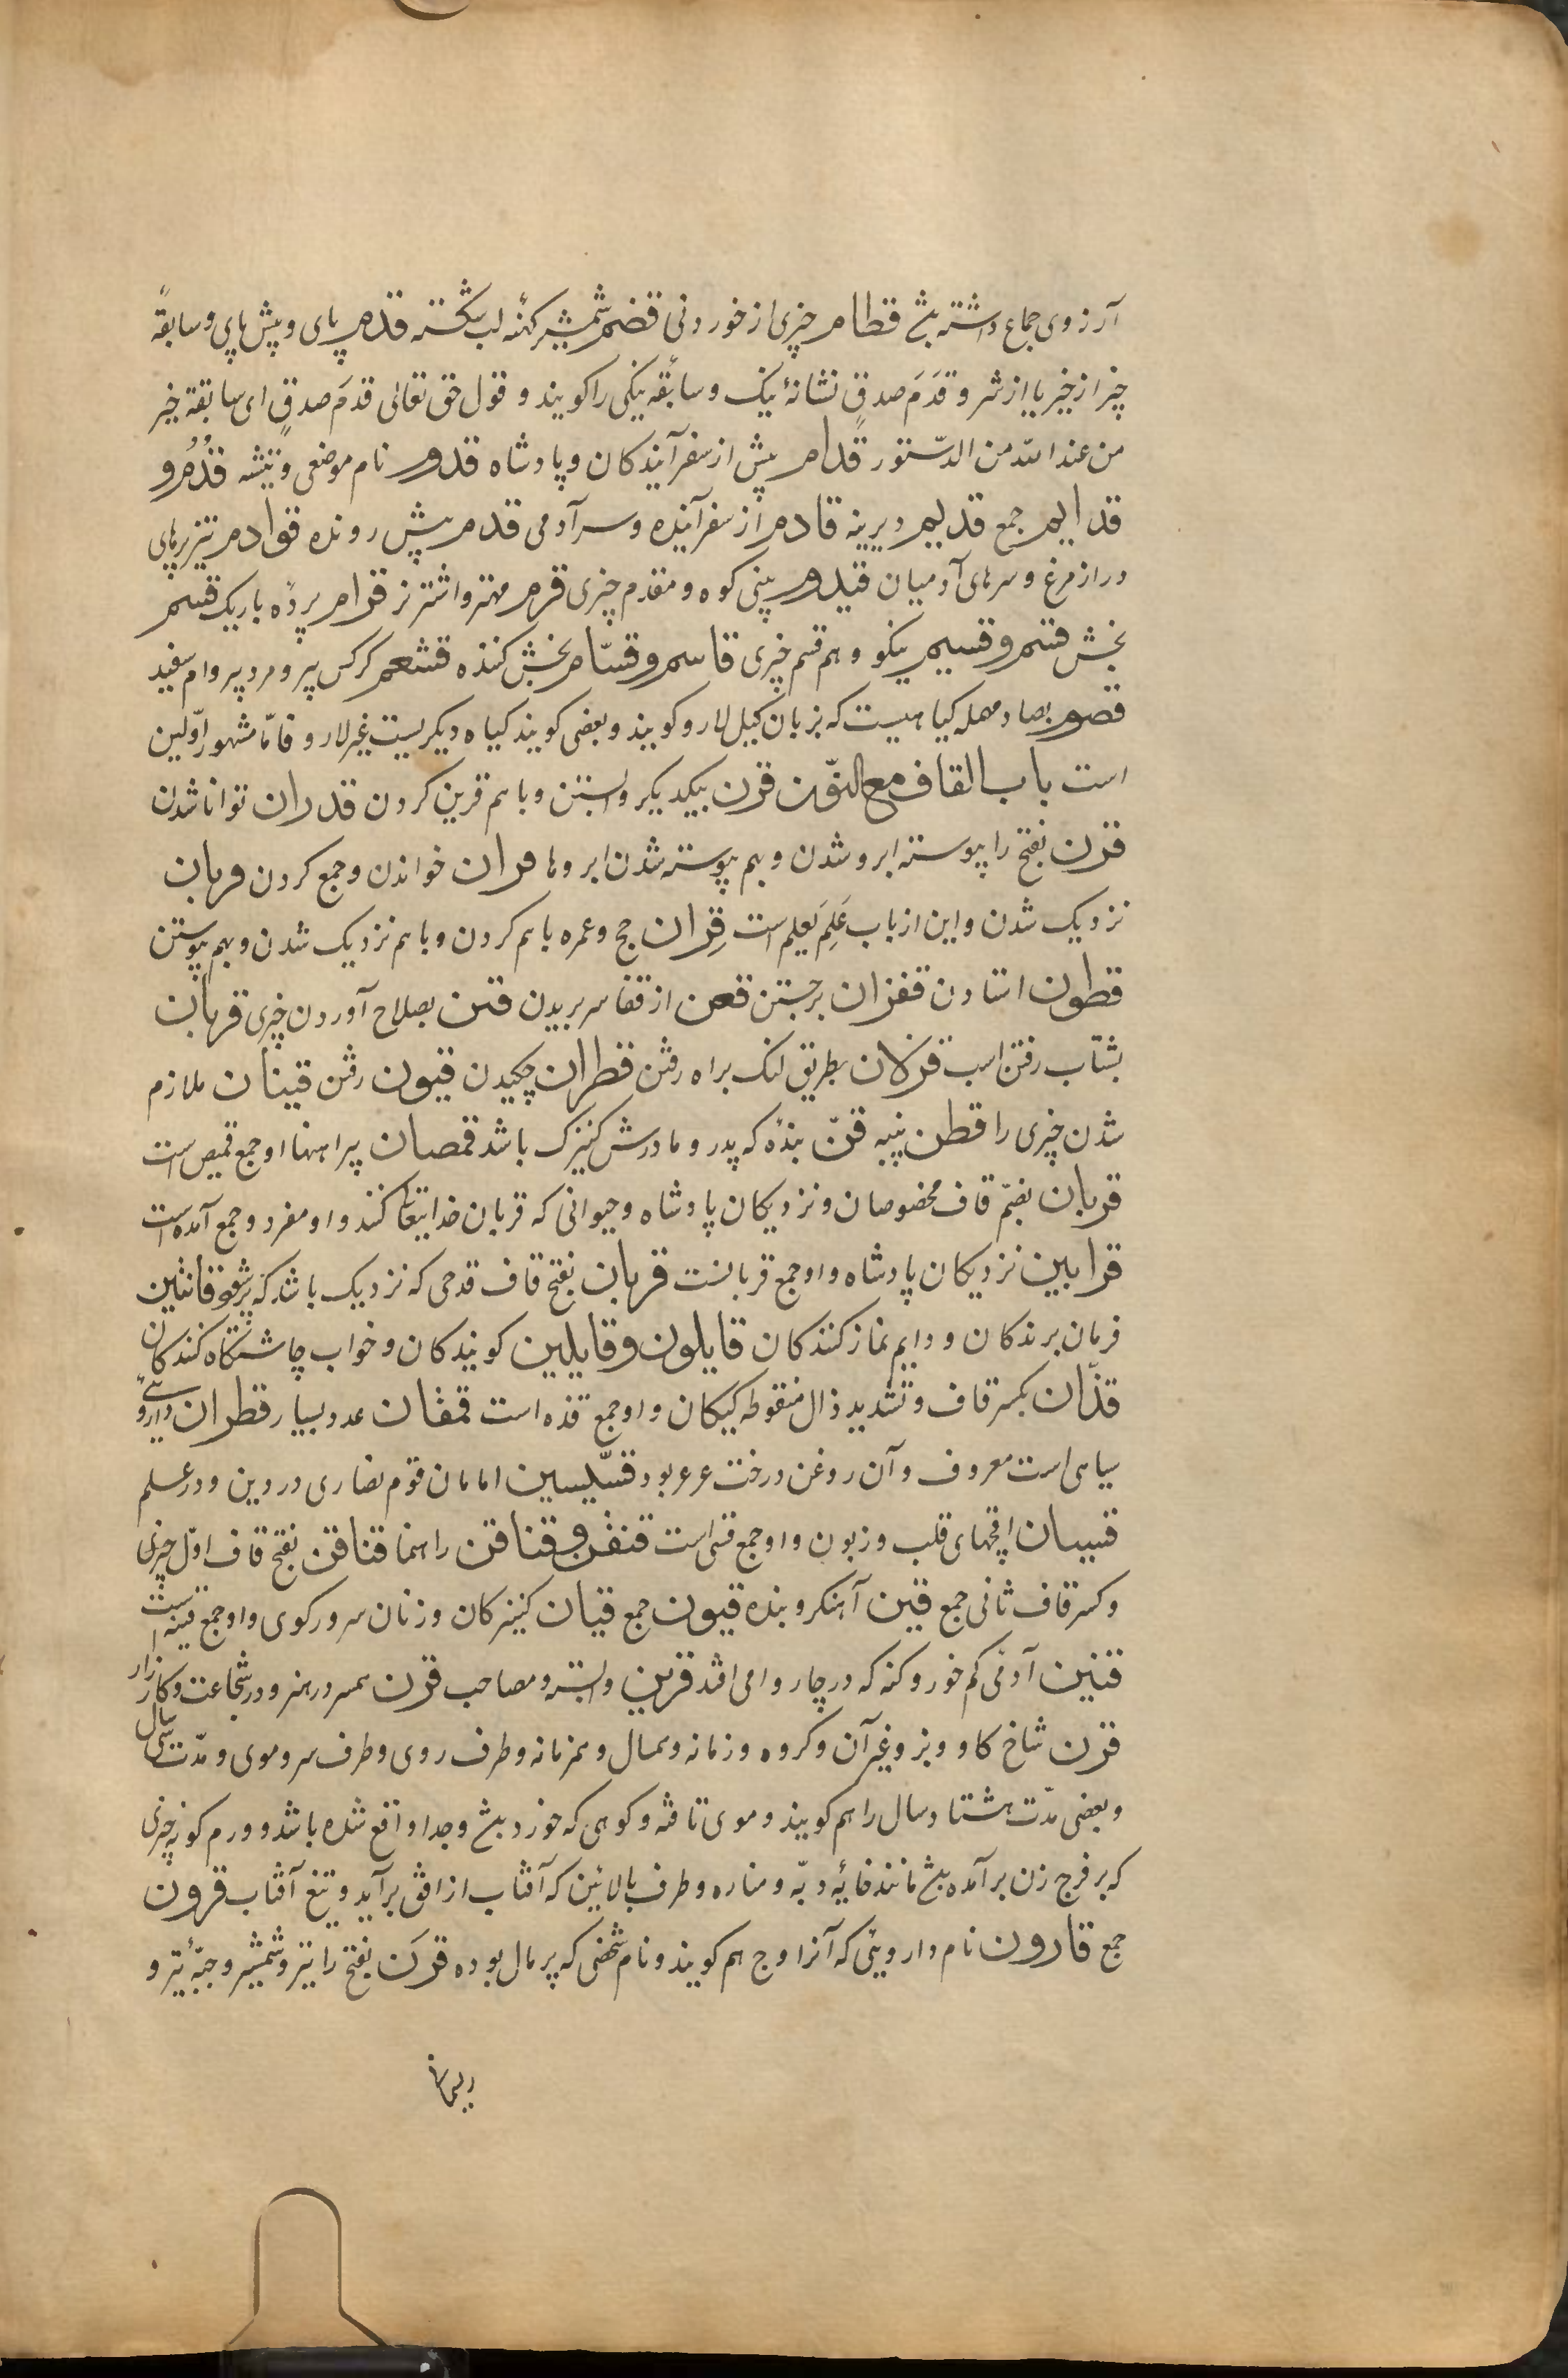 آرزوی جماع داشته بشد قطام چیزی از خوردنی قضم شمشیر کهنهٔ لب شکسته قدم پای و پیش پای و سابقهٔ
چیز از خیر یا از شر و قَدَمَ صدقٍ نشانهٔ نیک و سابقهٔ نیکی را کویند و قول حق تعالی قدمَ صدقٍ ای سابقة خیر
من عند الله من الدّستور قدام پیش از سفر آیندکان و پادشاه قدوم نام موضعی و تیشه قُدُم و
قدایم جمع قدیم دیرینه قادم از سفر آینده و سر آدمی قدم پیش رونده قوادم تیز پرهای
دراز مرغ و سرهای آدمیان قیدوم بینی کوه و مقدم چیزی قرم مهتر و اشتر نر قرام پردهٔ باریک قسم
بخش قسم و قسیم نیکو و هم قسم چیزی قاسم و قسّام بخش کننده قشعم کرکس پیر و مرد پیر و ام سفید
قصوم بصاد مهمله کیاهیست که بزبان کیل لارو کویند و بعضی کویند کیاه دیکریست غیر لارو فامّا مشهور اوّلین
است باب القاف مع النّون قرن بیکدیکر وابستن و باهم قرین کردن قدران توانا شدن
قرن بفتح را پیوسته ابرو شدن و بهم پیوسته شدن ابروها قران خواندن و جمع کردن قربان
نزدیک شدن و این از باب عَلِمَ یَعلم است قِران حج و عمره باهم کردن و باهم نزدیک شدن و بهم پیوستن
قطون استادن قفزان برجستن قعن از قفا سر بریدن قتن بصلاح آوردن چیزی قربان
بشتاب رفتن اسب قزلان بطریق لنک براه رفتن قطران چکیدن قیون رفتن قینان ملازم
شدن چیزی را قطن پنبه قنّ بندهٔ که پدر و مادرش کنیزک باشد قمصان پیراهنها او جمع قمیص است
قربان بضمّ قاف مخصوصان و نزدیکان پادشاه و حیوانی که قربان خدایتعالی کنند و او مفرد و جمع آمده است
قرابین نزدیکان پادشاه و او جمع قربانست قربان بفتح قاف قدحی که نزدیک باشد که پر شود قانتین
فرمان برندکان و دایم نماز کنندکان قایلون و قایلین کویندکان و خواب چاشتکاه کنندکان
قذّان بکسر قاف و تشدید ذال منقوطه کیکان و او جمع قذه است قمفان عدد بسیار قطران داروی
سیاهی است معروف و آن روغن درخت عرعر بود قسّیسین امامان قوم نصاری در دین و در علم
قسیان اقچهای قلب و زبون و او جمع قسی است قنقن و قناقن راهنما قناقن بفتح قاف اوّل چیزی
و کسر قاف ثانی جمع قین آهنکر و بنده قیون جمع قیان کنیزکان و زنان سرودکوی و او جمع قینه است
قنین آدمی کم خور و کنه که در چاروا می افتد قرین وابسته و مصاحب قرن همسر در هنر و در شجاعت و کارزار
قرن شاخ کاو و بز و غیر آن و کروه و زمانه و همسال و همزمانه و طرف روی و طرف سر و موی و مدّت سی سال
و بعضی مدّت هشتاد سال را هم کویند و موی تافته و کوهی که خورد بشد و جدا واقع شده باشد و ورم کونه چیزی
که بر فرج زن برآمده بشد مانند خایهٔ دبّه و مناره و طرف بالائین که آفتاب از افق برآید و تیغ آفتاب قرون
جمع قارون نام داروئی که آنرا وج هم کویند و نام شخصی که پر مال بوده قرَن بفتح را تیر و شمشیر و جبّهٔ تیر و
ریسمان